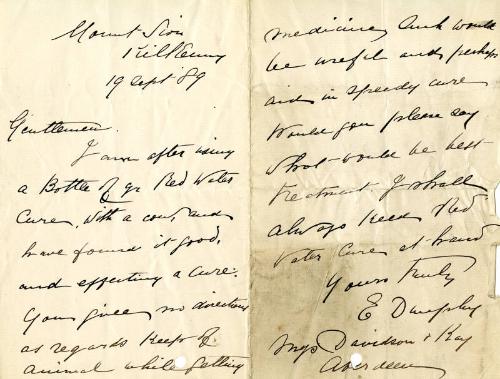 Mount Sion
Kilkenny
19 Sept '89
Gentlemen
I am after using
a Bottle of yr Red Water
Cure, with a cow, and
have found it good,
and effecting a cure.
You give no directions
as regards Keep of
animal while getting
medicine, such would
be useful and perhaps
aid in speedy cure
Would you please say
what would be best
treatment I shall
always keep Red
Water Cure at hand
Yours truly
E Dunphy
Davidson & Kay
Aberdeen